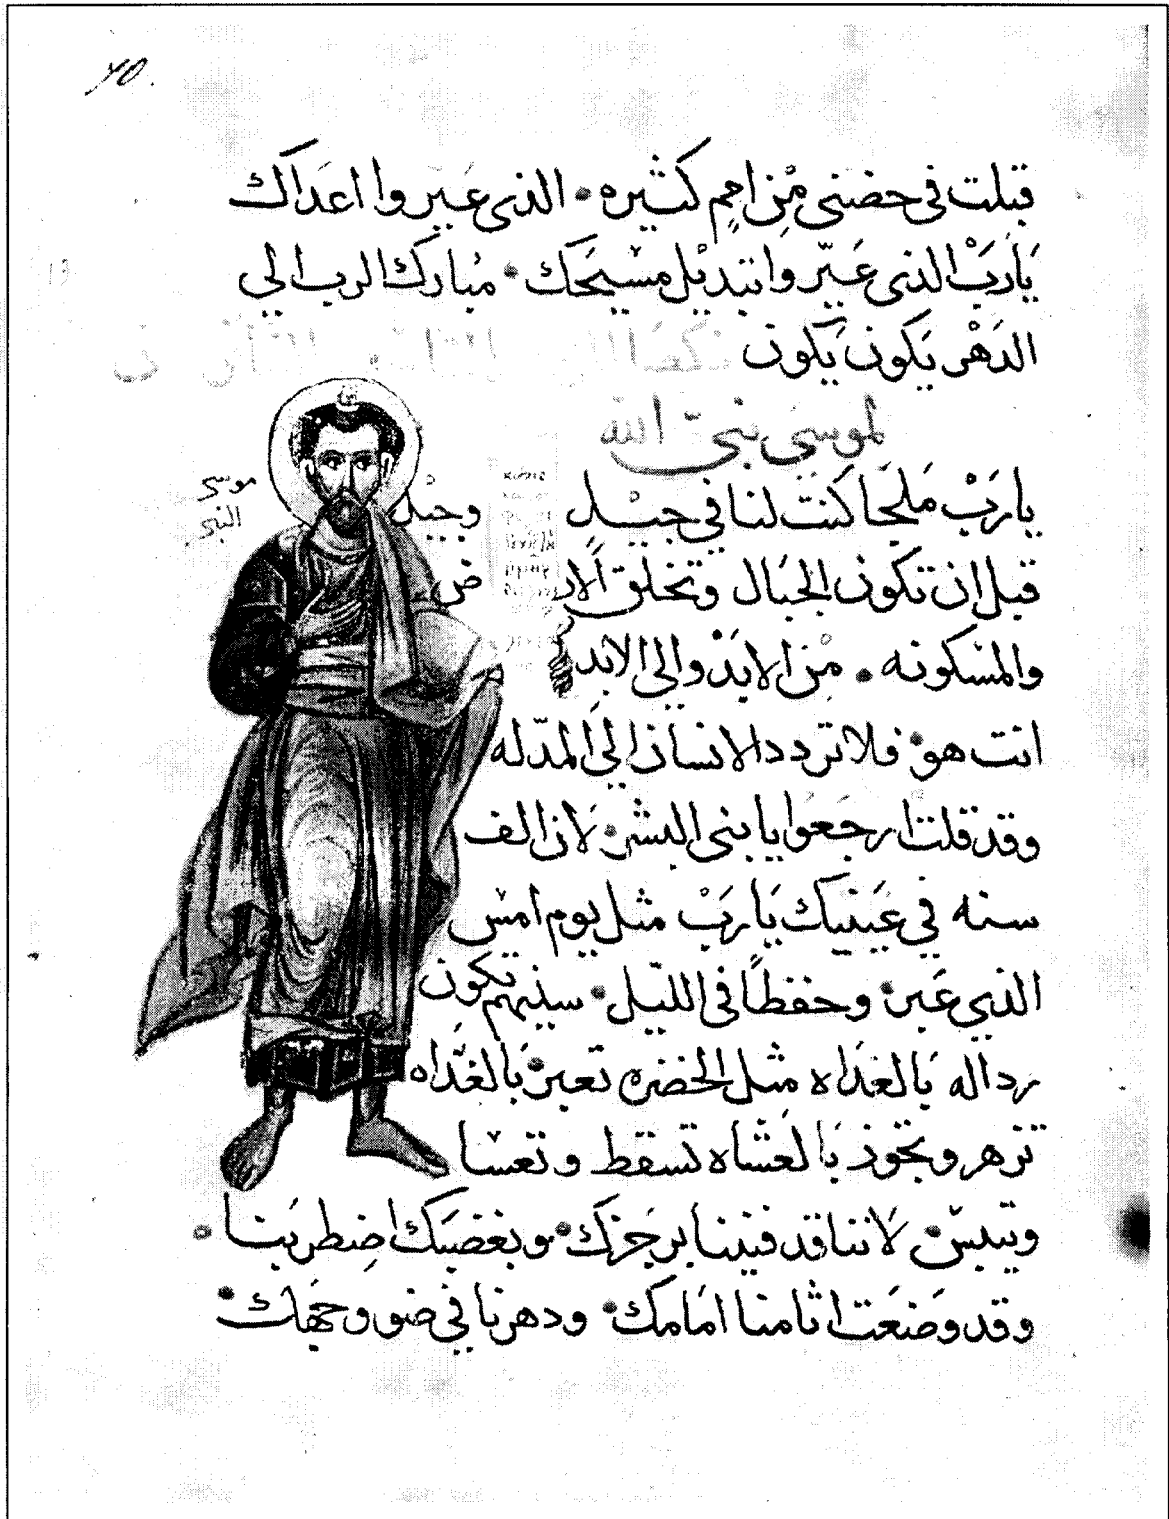 70.
قبلت في حضني مِن اممٍ كثيره • الذى عيّروا اعداك
يَارَبْ الذى عَيّروا بتبديْل مسيحَك • مُبارك الرب الي
الدَهْر يَكون يَكون
لموسي نبيّ الله
موسى
النبي
يارَبْ مَلجَا كنت لنا في جيْــل وجيْل
قبل ان تكون الجبَال وتخلق الارض
والمسْكونه • مِن الابَدْ والي الابد
انت هو • فلا تردد الانسان الي المدّله
وقد قلت ارجعَوا يا بني البشر • لان الف
سنه في عَينيك يَارَبْ مثل يوم امس
الذي عَبر • وحفظاً فى الليل • سنيهم تكون
رداله بَالغدَاه مثل الخضره تعبر • بَالغدَاه
تزهر وتجوز بَالعشاه تسقط وتعسا
وتيبس • لاننا قد فنينا برجزك • وبغضبك اضطربنا •
وقد وضَعت اثامنا امَامك • ودهرنا في ضو وجهك •